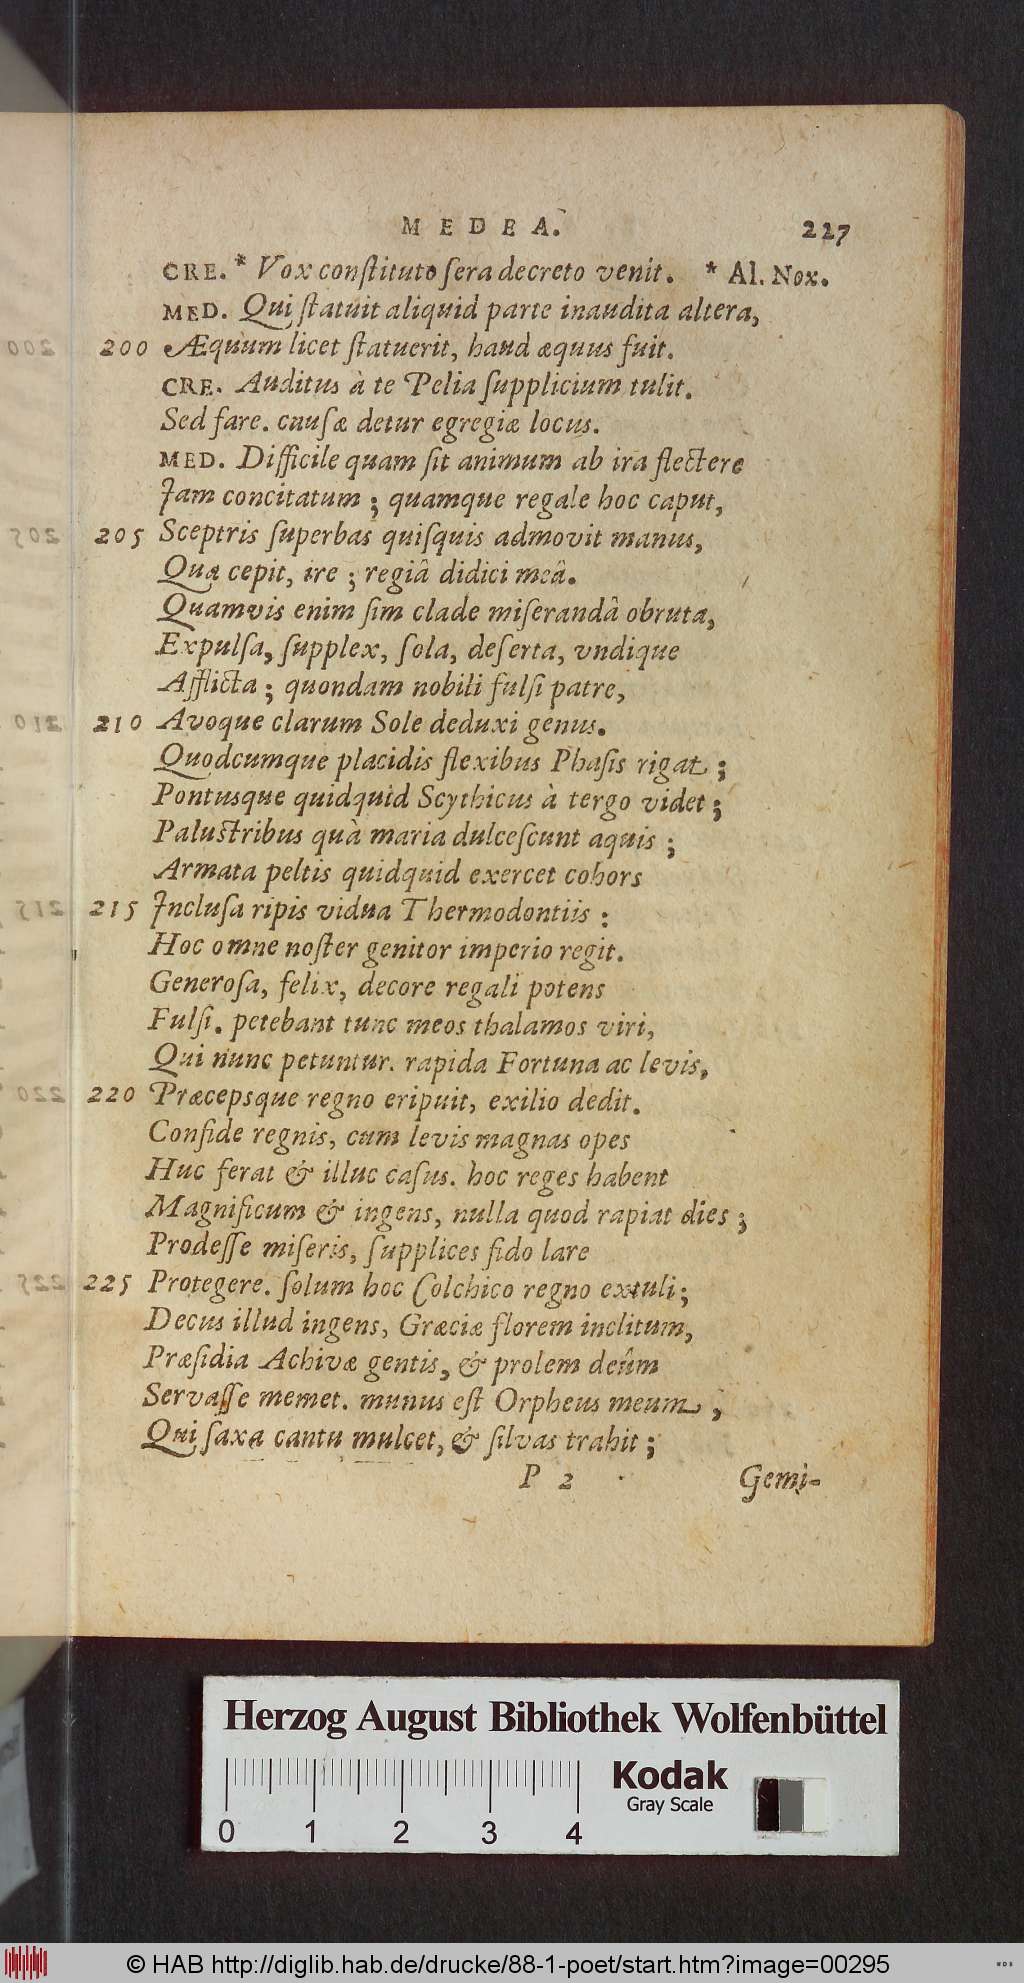 MEDEA. 227
CRE. * Vox conſtituto ſera decreto venit. * Al. Nox.
MED. Qui ſtatuit aliquid parte inaudita altera,
200 Æquum licet ſtatuerit, haud æquus fuit.
CRE. Auditus à te Pelia ſupplicium tulit.
Sed fare. cauſæ detur egregiæ locus.
MED. Difficile quam ſit animum ab ira flectere
Jam concitatum; quamque regale hoc caput,
205 Sceptris ſuperbas quiſquis admovit manus,
Qua cepit, ire; regiâ didici meâ.
Quamvis enim ſim clade miſerandâ obruta,
Expulſa, ſupplex, ſola, deſerta, vndique
Afflicta; quondam nobili fulſi patre,
210 Avoque clarum Sole deduxi genus.
Quodcumque placidis flexibus Phaſis rigat;
Pontusque quidquid Scythicus à tergo videt;
Paluſtribus quà maria dulceſcunt aquis;
Armata peltis quidquid exercet cohors
215 Jncluſa ripis vidua Thermodontiis:
Hoc omne noſter genitor imperio regit.
Generoſa, felix, decore regali potens
Fulſi. petebant tunc meos thalamos viri,
Qui nunc petuntur. rapida Fortuna ac levis,
220 Præcepsque regno eripuit, exilio dedit.
Confide regnis, cum levis magnas opes
Huc ferat & illuc caſus. hoc reges habent
Magnificum & ingens, nulla quod rapiat dies;
Prodeſſe miſeris, ſupplices fido lare
225 Protegere. ſolum hoc Colchico regno extuli;
Decus illud ingens, Græciæ florem inclitum,
Præſidia Achivæ gentis, & prolem deûm
Servaſſe memet. munus eſt Orpheus meum,
Qui ſaxa cantu mulcet, & ſilvas trahit;
P 2 Gemi-
Herzog August Bibliothek Wolfenbüttel
Kodak
Gray Scale
0 1 2 3 4
© HAB http://diglib.hab.de/drucke/88-1-poet/start.htm?image=00295